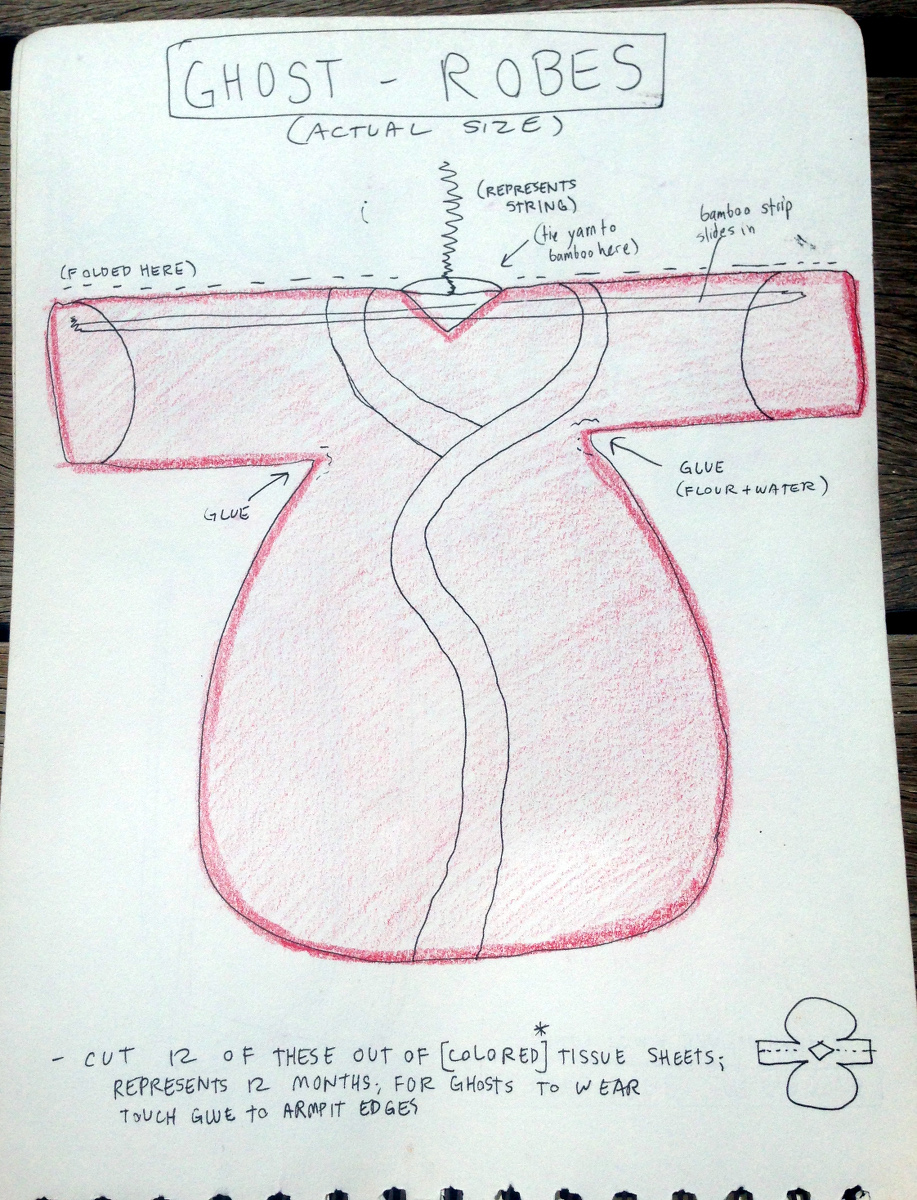 GHOST - ROBES
(ACTUAL SIZE)
(REPRESENTS
STRING)
(tie yarn to
bamboo here)
bamboo strip
slides in
(FOLDED HERE)
GLUE
GLUE
(FLOUR + WATER)
*
- CUT 12 OF THESE OUT OF [COLORED] TISSUE SHEETS;
REPRESENTS 12 MONTHS; FOR GHOSTS TO WEAR
TOUCH GLUE TO ARMPIT EDGES